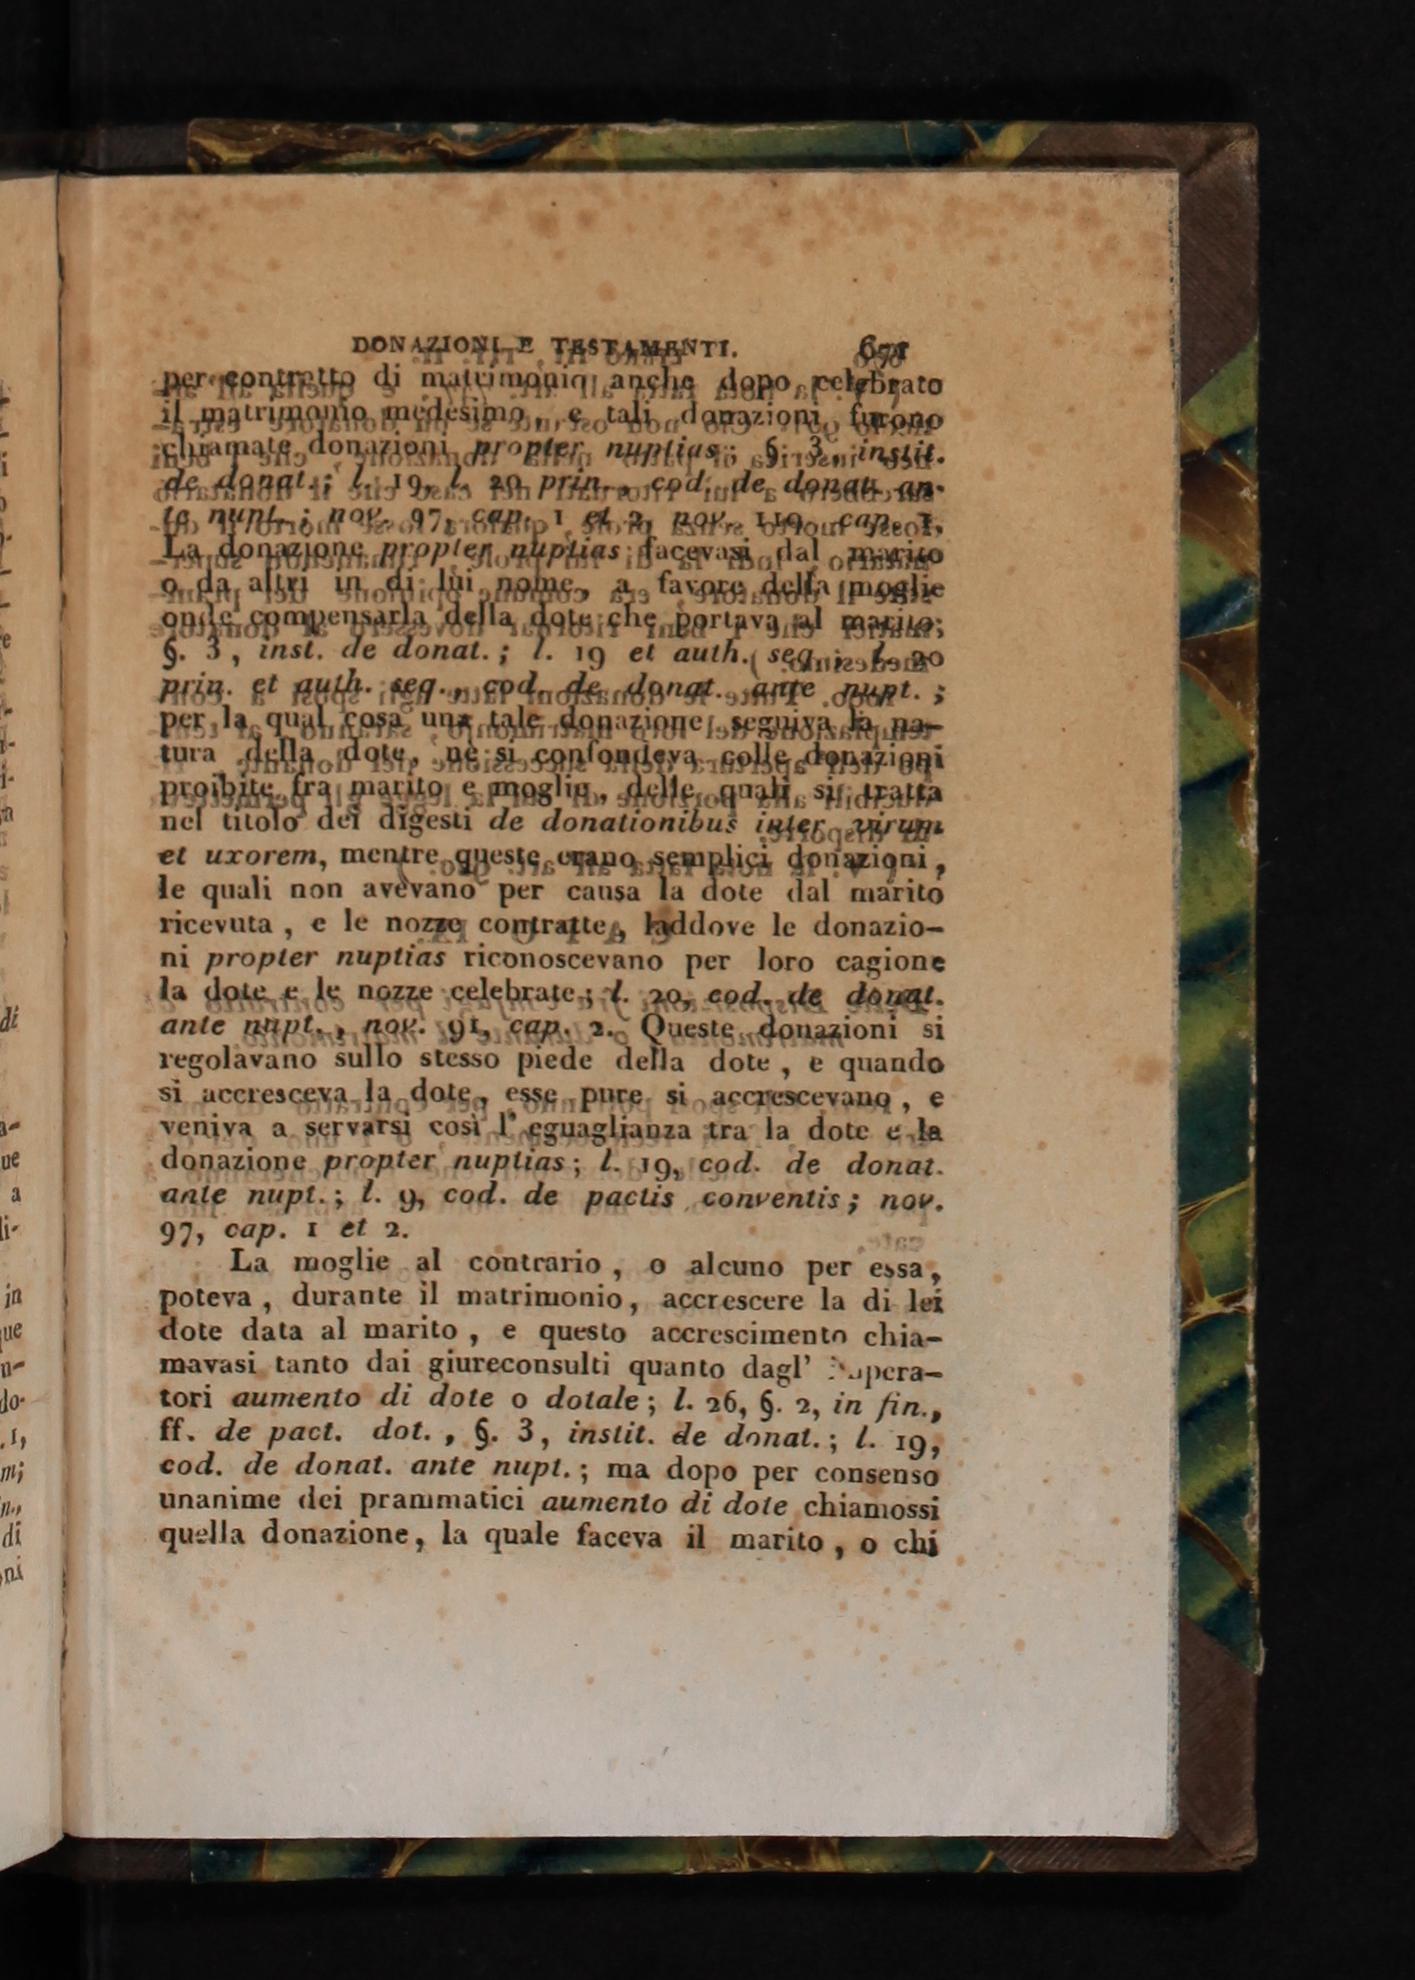 DONAZIONI E TESTAMENTI. 671
per contratto di matrimonio, anche dopo celebrato
il matrimonio medesimo, e tali donazioni furono
chiamate donazioni propter nuptias; §. 3, instit.
de donat.; l. 19, l. 20 prin., cod. de donat. an-
te nupt.; nov. 97, cap. 1 et 2, nov. 119, cap. 1.
La donazione propter nuptias facevasi dal marito
o da altri in di lui nome, a favore della moglie
onde compensarla della dote che portava al marito;
§. 3, inst. de donat.; l. 19 et auth. seq., l. 20
prin. et auth. seq., cod. de donat. ante nupt.;
per la qual cosa una tale donazione seguiva la na-
tura della dote, nè si confondeva colle donazioni
proibite fra marito e moglie, delle quali si tratta
nel titolo dei digesti de donationibus inter virum
et uxorem, mentre queste erano semplici donazioni,
le quali non avevano per causa la dote dal marito
ricevuta, e le nozze contratte, laddove le donazio-
ni propter nuptias riconoscevano per loro cagione
la dote e le nozze celebrate; l. 20, cod. de donat.
ante nupt., nov. 91, cap. 2. Queste donazioni si
regolavano sullo stesso piede della dote, e quando
si accresceva la dote, esse pure si accrescevano, e
veniva a servarsi così l'eguaglianza tra la dote e la
donazione propter nuptias; l. 19, cod. de donat.
ante nupt.; l. 9, cod. de pactis conventis; nov.
97, cap. 1 et 2.
La moglie al contrario, o alcuno per essa,
poteva, durante il matrimonio, accrescere la di lei
dote data al marito, e questo accrescimento chia-
mavasi tanto dai giureconsulti quanto dagl'
tori aumento di dote o dotale; l. 26, §. 2, in fin.,
ff. de pact. dot., §. 3, instit. de donat.; l. 19,
cod. de donat. ante nupt.; ma dopo per consenso
unanime dei prammatici aumento di dote chiamossi
quella donazione, la quale faceva il marito, o chi